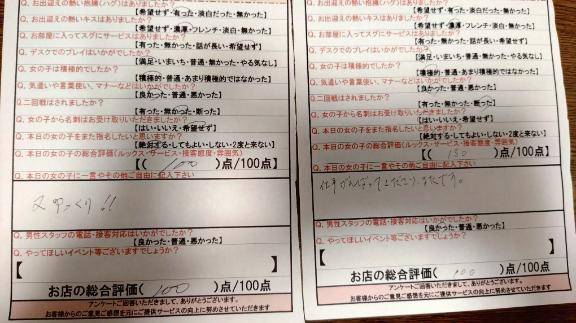 Q. お出迎えの熱い抱擁(ハグ)はありましたか？
【希望せず・有った・淡白だった・無かった】
Q. お出迎えの熱いキスはありましたか？
【希望せず・濃厚・フレンチ・淡白・無かった】
Q. お部屋に入ってスグにサービスはありましたか？
【有った・無かった・話が長い・希望せず】
Q. デスクでのプレイはいかがでしたか？
【満足・いまいち・普通・無かった・やる気なし】
Q. 女の子は積極的でしたか？
【積極的・普通・あまり積極的ではなかった】
Q. 気遣いや言葉使い、マナーなどはいかがでしたか？
【良かった・普通・悪かった】
Q. 二回戦はされましたか？
【有った・無かった・断った】
Q. 女の子から名刺はお受け取りいただきましたか？
【はい・いいえ・希望せず】
Q. 本日の女の子をまた指名したいと思いますか？
【絶対する・してもよい・しない・2度と来ない】
Q. 本日の女の子の総合評価(ルックス・サービス・接客態度・雰囲気)
【( 100 )点/100点】
Q. 本日の女の子に一言やその他ご自由に記入下さい
又ゆっくり!!
Q. 男性スタッフの電話・接客対応はいかがでしたか？
【良かった・普通・悪かった】
Q. やってほしいイベント等ございますでしょうか？
【 】
お店の総合評価( 100 )点/100点
アンケートご回答いただきまして、ありがとうございます。
お客様からのご意見ご感想を元にご提供サービスの向上に努めさせていただきます
Q. お出迎えの熱い抱擁(ハグ)はありましたか？
【希望せず・有った・淡白だった・無かった】
Q. お出迎えの熱いキスはありましたか？
【希望せず・濃厚・フレンチ・淡白・無かった】
Q. お部屋に入ってスグにサービスはありましたか？
【有った・無かった・話が長い・希望せず】
Q. デスクでのプレイはいかがでしたか？
【満足・いまいち・普通・無かった・やる気なし】
Q. 女の子は積極的でしたか？
【積極的・普通・あまり積極的ではなかった】
Q. 気遣いや言葉使い、マナーなどはいかがでしたか？
【良かった・普通・悪かった】
Q. 二回戦はされましたか？
【有った・無かった・断った】
Q. 女の子から名刺はお受け取りいただきましたか？
【はい・いいえ・希望せず】
Q. 本日の女の子をまた指名したいと思いますか？
【絶対する・してもよい・しない・2度と来ない】
Q. 本日の女の子の総合評価(ルックス・サービス・接客態度・雰囲気)
【( 150 )点/100点】
Q. 本日の女の子に一言やその他ご自由に記入下さい
Q. 男性スタッフの電話・接客対応はいかがでしたか？
【良かった・普通・悪かった】
Q. やってほしいイベント等ございますでしょうか？
【 】
お店の総合評価( 100 )点/100点
アンケートご回答いただきまして、ありがとうございます。
お客様からのご意見ご感想を元にご提供サービスの向上に努めさせていただきます